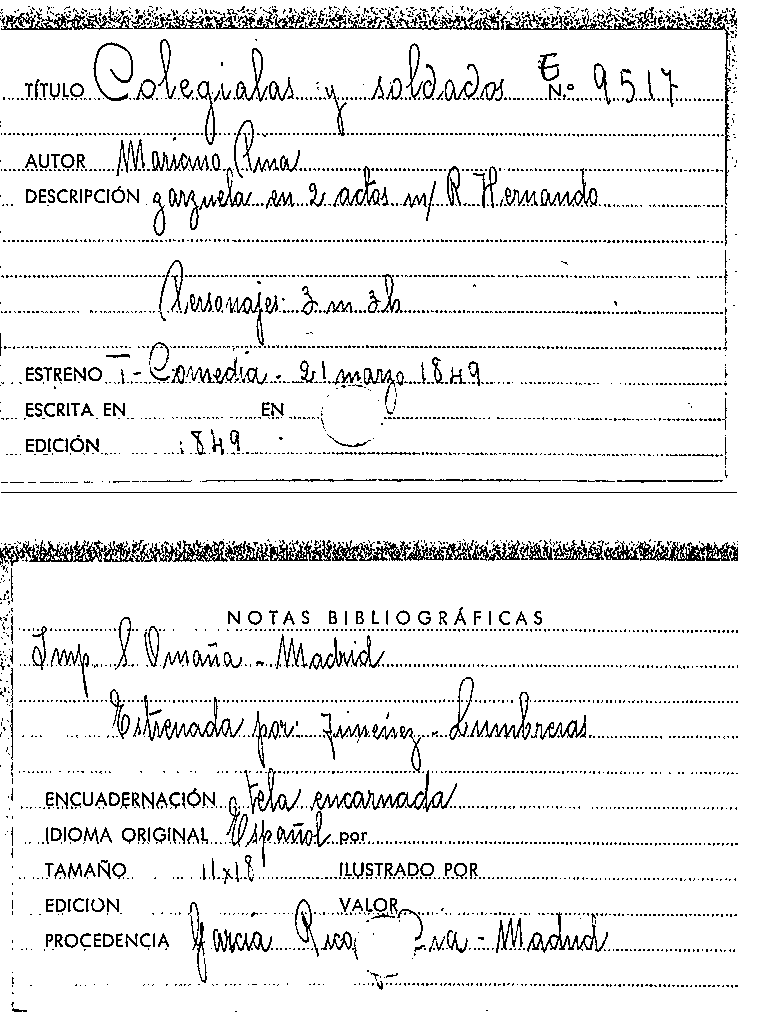 TÍTULO Colegialas y soldados E N.º 9517
AUTOR Mariano Pina
DESCRIPCIÓN zarzuela en 2 actos m/ R Hernando
Personajes: 3 m 3h
ESTRENO T- Comedia - 21 marzo 1849
ESCRITA EN EN
EDICIÓN 1849
NOTAS BIBLIOGRÁFICAS
Imp. S Omaña - Madrid
Estrenada por: Jiménez - Lumbreras
ENCUADERNACIÓN tela encarnada
IDIOMA ORIGINAL Español por
TAMAÑO 11x18 ILUSTRADO POR
EDICION VALOR
PROCEDENCIA García Rico - Madrid